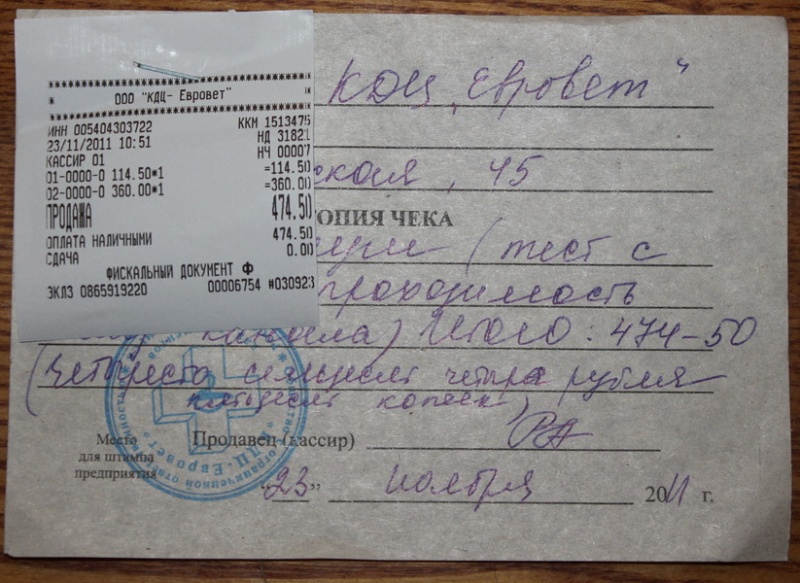 ООО "КДЦ- Евровет"
ИНН 005404303722 ККМ 1513475
23/11/2011 10:51 НД 31821
КАССИР 01 НЧ 00007
01-0000-0 114.50*1 =114.50
02-0000-0 360.00*1 =360.00
ПРОДАЖА 474.50
ОПЛАТА НАЛИЧНЫМИ 474.50
СДАЧА 0.00
ФИСКАЛЬНЫЙ ДОКУМЕНТ Ф
ЭКЛЗ 0865919220 00006754 #030923
КДЦ „Евровет"
ская, 45
ОПИЯ ЧЕКА
(тест с
проходимость
канала) Итого: 474-50
(Четыреста семьдесят четыре рубля
пятьдесят копеек)
Место
для штампа
предприятия
Продавец (кассир)
"23" ноября 2011 г.
КДЦ-Евровет